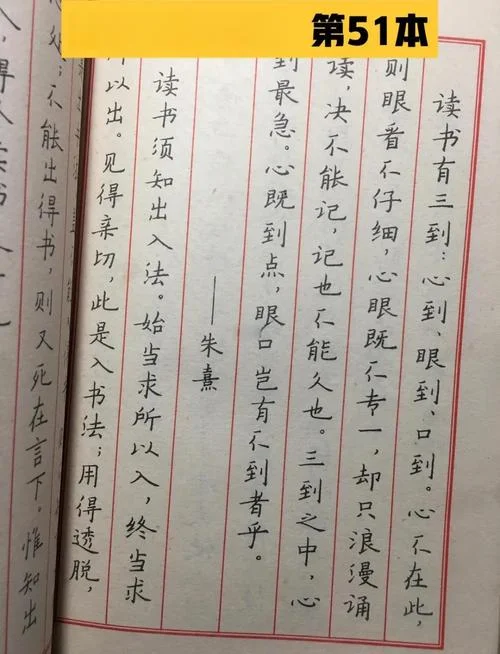 第51本
读书有三到:心到、眼到、口到。心不在此,
则眼看不仔细,心眼既不专一,却只浪漫诵
读,决不能记,记也不能久也。三到之中,心
到最急。心既到点,眼口岂有不到者乎。
——朱熹
读书须知出入法。始当求所以入,终当求
所以出。见得亲切,此是入书法;用得透脱,
处;不能出得书,则又死在言下。惟知出